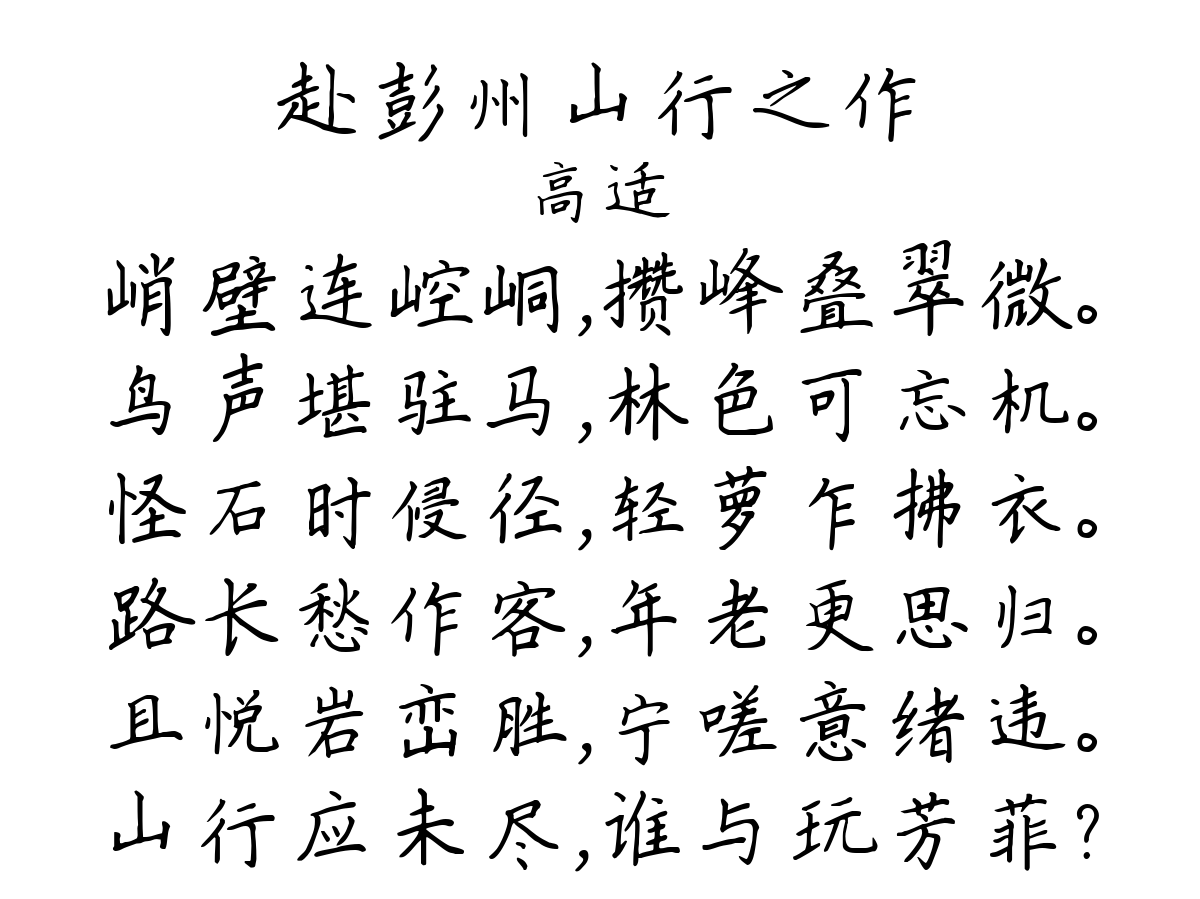 赴彭州山行之作
高适
峭壁连崆峒,攒峰叠翠微。
鸟声堪驻马,林色可忘机。
怪石时侵径,轻萝乍拂衣。
路长愁作客,年老更思归。
且悦岩峦胜,宁嗟意绪违。
山行应未尽,谁与玩芳菲?